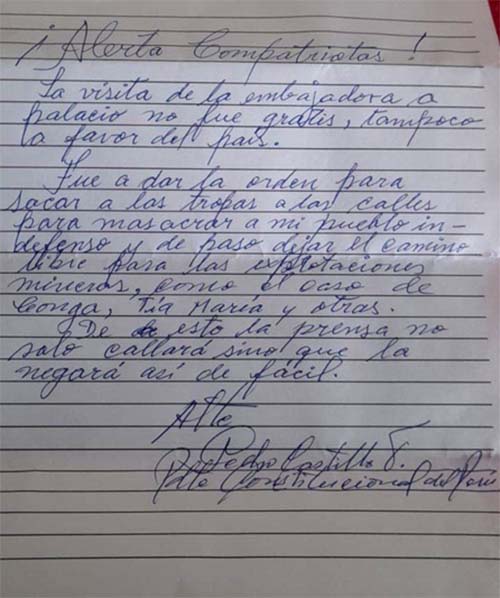 ¡Alerta Compatriotas!
La visita de la embajadora a
palacio no fue gratis, tampoco
a favor del país.
Fue a dar la orden para
sacar a las tropas a las calles
para masacrar a mi pueblo in-
defenso y de paso dejar el camino
libre para las explotaciones
mineras, como el caso de
Conga, Tía María y otras.
De esto la prensa no
solo callará sino que la
negará así de fácil.
Atte
Pedro Castillo T.
Pdte Constitucional del Perú